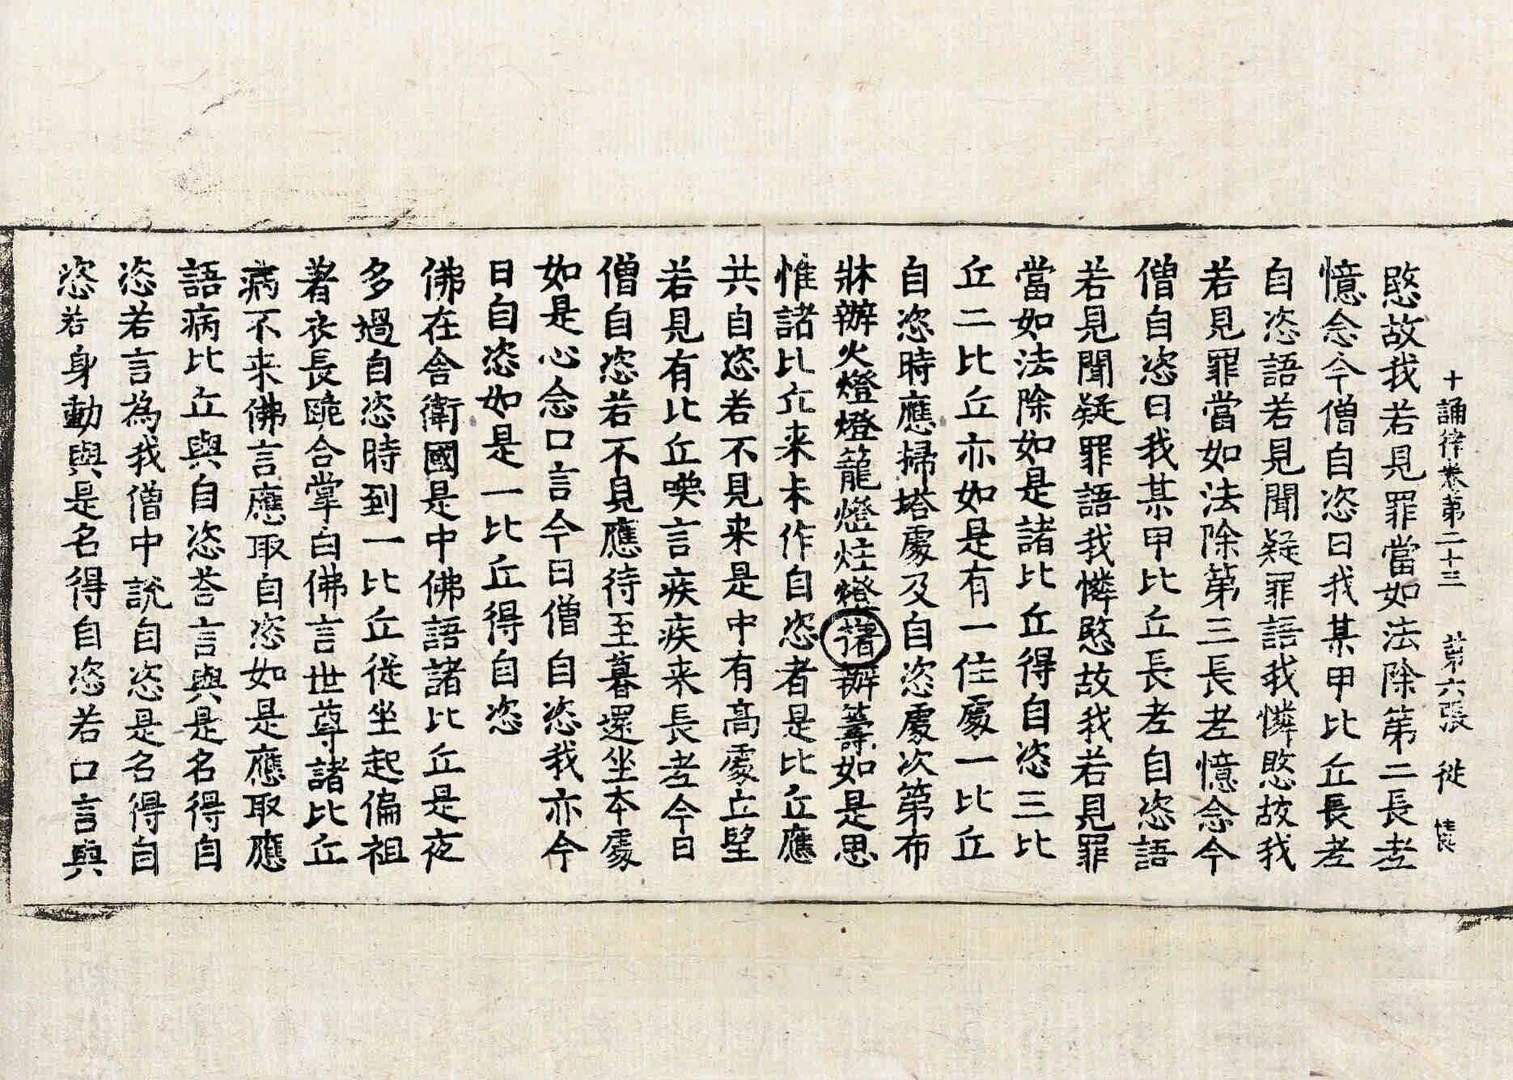 十誦律卷第二十三　第六張　從
愍故我若見罪當如法除第二長老
憶念今僧自恣日我某甲比丘長老
自恣語若見聞疑罪語我憐愍故我
若見罪當如法除第三長老憶念今
僧自恣日我某甲比丘長老自恣語
若見聞疑罪語我憐愍故我若見罪
當如法除如是諸比丘得自恣三比
丘二比丘亦如是有一住處一比丘
自恣時應掃塔處及自恣處次第布
牀辦火燈燈籠燈炷燈𦼮辦籌如是思
惟諸比丘来未作自恣者是比丘應
共自恣若不見来是中有高處立望
若見有比丘喚言疾疾来長老今日
僧自恣若不見應待至暮還坐本處
如是心念口言今日僧自恣我亦今
日自恣如是一比丘得自恣
佛在舍衛國是中佛語諸比丘是夜
多過自恣時到一比丘從坐起偏袒
著衣長跪合掌白佛言世尊諸比丘
病不来佛言應取自恣如是應取應
語病比丘與自恣荅言與是名得自
恣若言為我僧中說自恣是名得自
恣若身動與是名得自恣若口言與